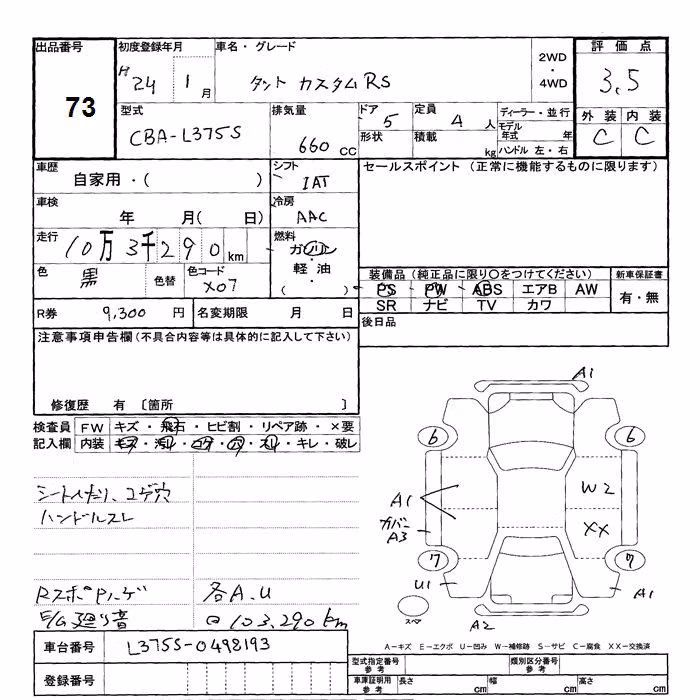 出品番号 初度登録年月 車名・グレード 2WD・4WD 評価点
73 H24 1月 タント カスタムRS 3.5
型式 排気量 ドア 定員 ディーラー・並行 外装 内装
CBA-L375S 660 cc 5 4人 モデル年式 年 C C
形状 積載 kg ハンドル 左・右
車歴 シフト セールスポイント (正常に機能するものに限ります)
自家用・( ) IAT
車検 冷房
年 月( 日) AAC
走行 燃料
10万3千290km ガソリン
色 色替 色コード 軽・油
黒 X07 ( )
装備品 (純正品に限り○をつけてください) 新車保証書
PS PW ABS エアB AW 有・無
SR ナビ TV カワ
R券 9,300円 名変期限 月 日 後日品
注意事項申告欄(不具合内容等は具体的に記入して下さい)
修復歴 有 〔箇所 〕
検査員 FW キズ・飛石・ヒビ割・リペア跡・×要
記入欄 内装 キズ・汚れ・コゲ・穴・スレ・キレ・破レ
シートヘたり、コゲ穴
ハンドルスレ
各A.U
103,290km
A1
6 6
A1 W2
カバー A3 XX
7 7
U1 A1
スペア A2
車台番号 L375S-0498193
登録番号
A-キズ E-エクボ U-凹み W-補修跡 S-サビ C-腐食 XX-交換済
型式指定番号 参考 類別区分番号 参考
車庫証明用 参考 長さ cm 幅 cm 高さ cm